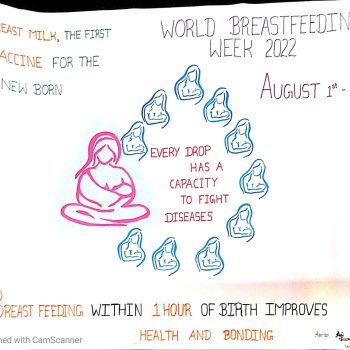 REAST MILK, THE FIRST
ACCINE FOR THE
NEW BORN
WORLD BREASTFEEDIN
WEEK 2022
AUGUST 1ST -
EVERY DROP
HAS A
CAPACITY
TO FIGHT
DISEASES
BREAST FEEDING WITHIN 1 HOUR OF BIRTH IMPROVES
HEALTH AND BONDING
ned with CamScanner